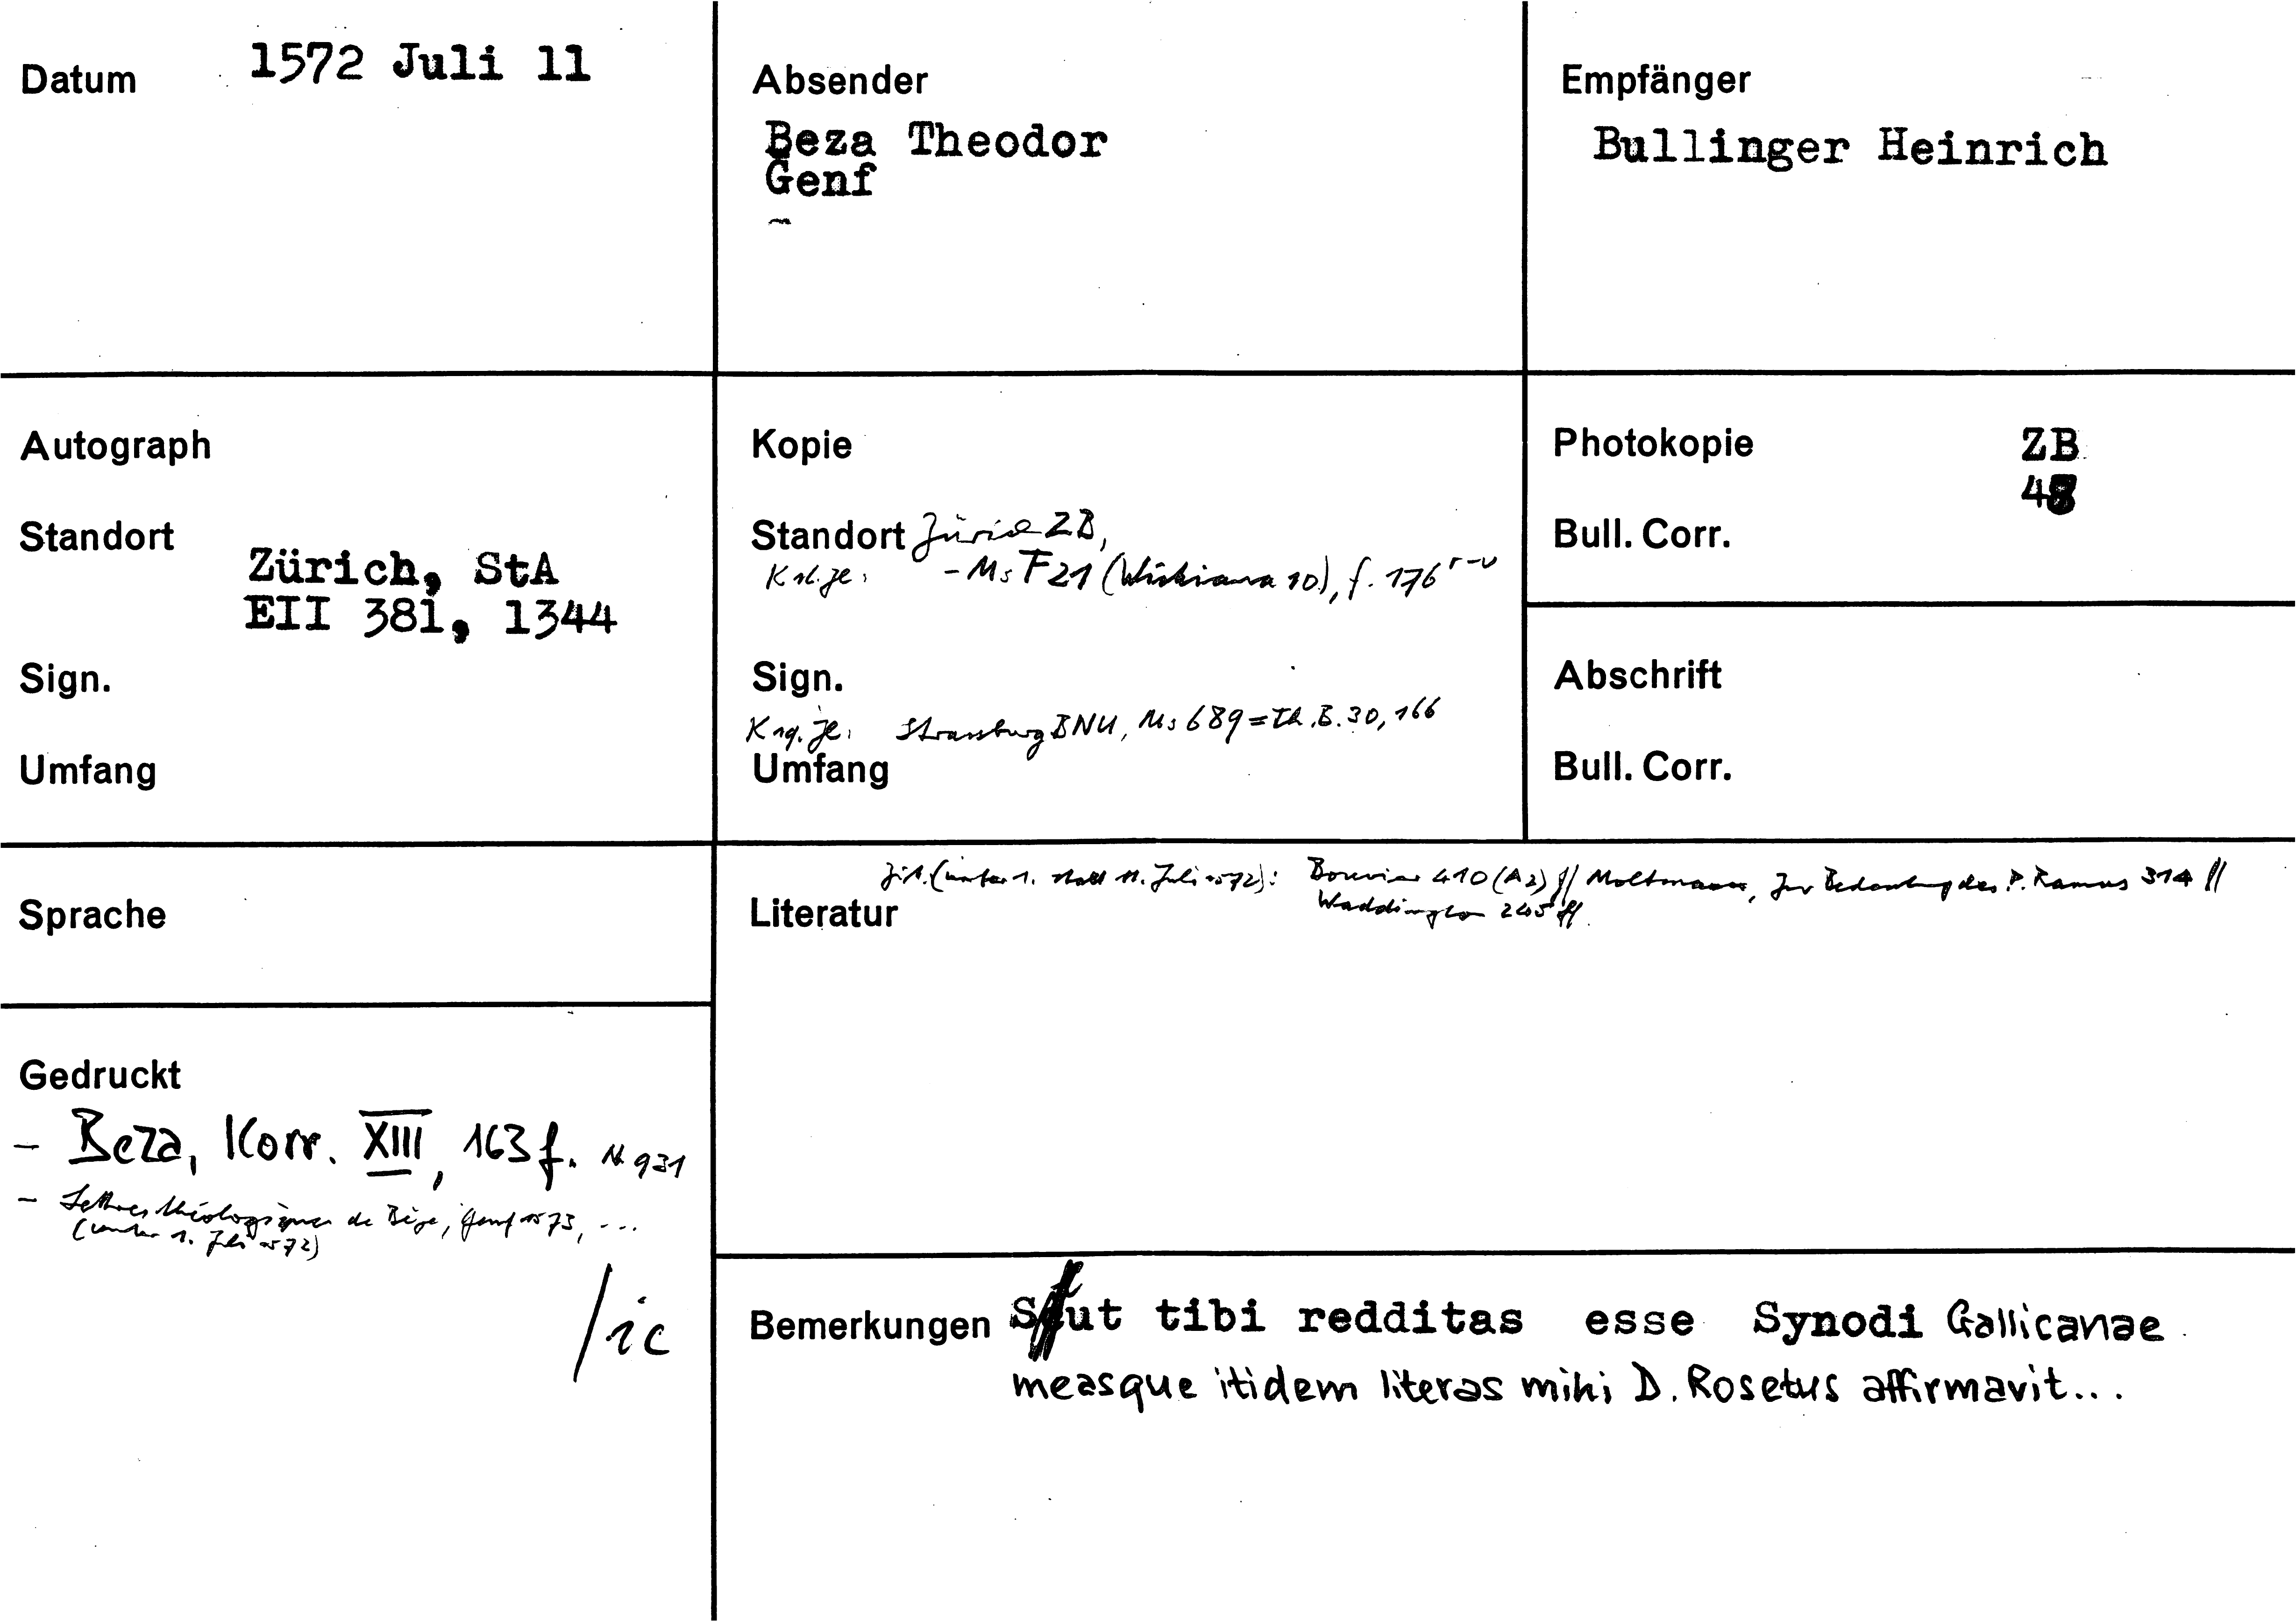 Datum 1572 Juli 11
Absender
Beza Theodor
Genf
Empfänger
Bullinger Heinrich
Autograph
Standort
Zürich, StA
EII 381, 1344
Sign.
Umfang
Kopie
Standort Zürich ZB,
- Ms F 21 (Wickiana 10), f. 176 r-v
Sign.
Strassburg BNU, Ms 689 = Th. B. 30, 166
Umfang
Photokopie ZB
48
Bull. Corr.
Abschrift
Bull. Corr.
Sprache
Literatur
Zit. (unter 1. statt 11. Juli 1572): 410 (A2) // Moltmann, Zur Bedeutung des P. Ramus 314 //
Waddington 245 ff.
Gedruckt
- Beza, Korr. XIII, 163 f. N. 931
- Lettres théologiques de Bèze, Genf 1573, ...
(unter 1. Juli 1572)
/ic
Bemerkungen
ut tibi redditas esse Synodi Gallicanae
measque itidem literas mihi D. Rosetus affirmavit...